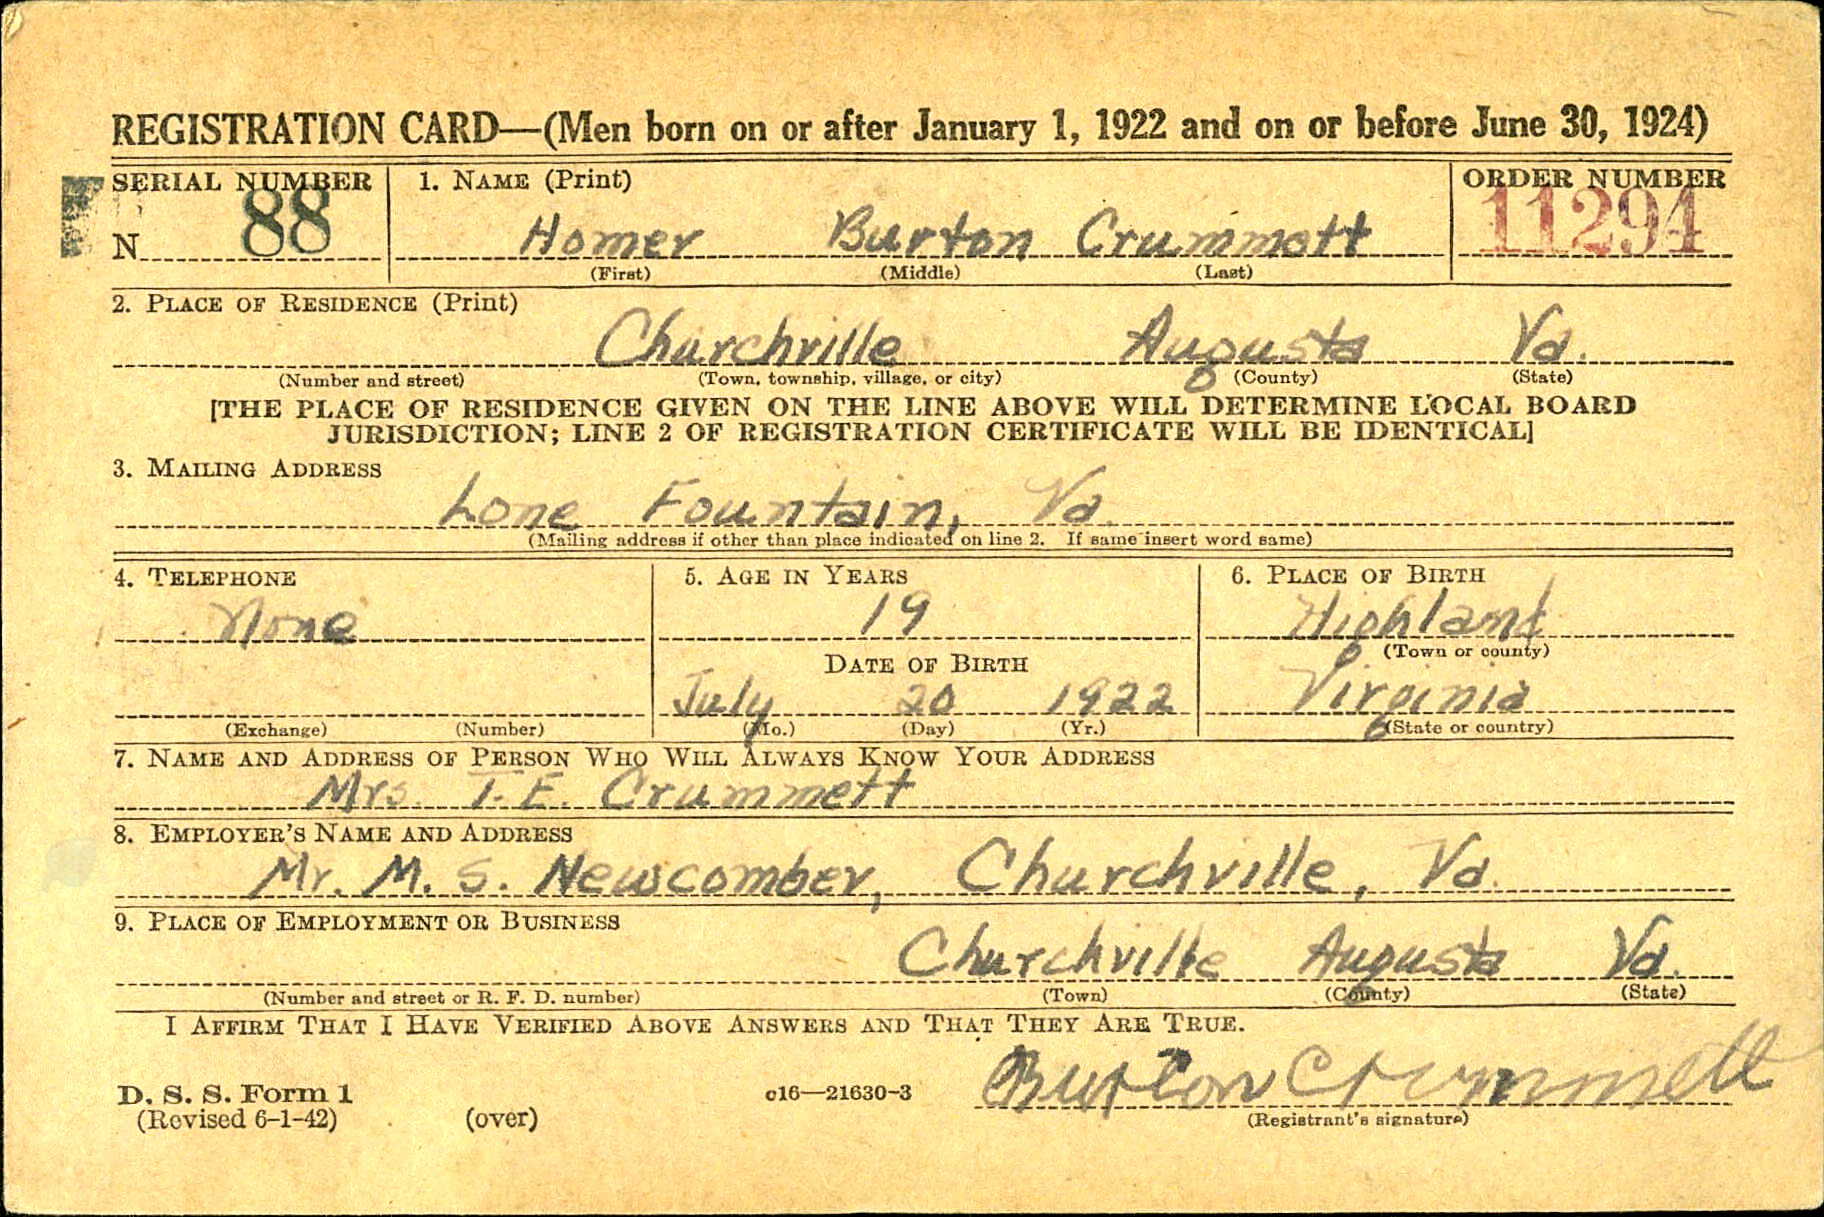 REGISTRATION CARD—(Men born on or after January 1, 1922 and on or before June 30, 1924)
SERIAL NUMBER 1. NAME (Print) ORDER NUMBER
N 88 Homer Burton Crummett 11294
(First) (Middle) (Last)
2. PLACE OF RESIDENCE (Print)
Churchville Augusta Va.
(Number and street) (Town, township, village, or city) (County) (State)
[THE PLACE OF RESIDENCE GIVEN ON THE LINE ABOVE WILL DETERMINE LOCAL BOARD
JURISDICTION; LINE 2 OF REGISTRATION CERTIFICATE WILL BE IDENTICAL]
3. MAILING ADDRESS
Lone Fountain, Va.
(Mailing address if other than place indicated on line 2. If same insert word same)
4. TELEPHONE 5. AGE IN YEARS 6. PLACE OF BIRTH
None 19 Highland
(Town or county)
DATE OF BIRTH
July 20 1922 Virginia
(Exchange) (Number) (Mo.) (Day) (Yr.) (State or country)
7. NAME AND ADDRESS OF PERSON WHO WILL ALWAYS KNOW YOUR ADDRESS
Mrs. T. E. Crummett
8. EMPLOYER'S NAME AND ADDRESS
Mr. M. S. Newcomber, Churchville, Va.
9. PLACE OF EMPLOYMENT OR BUSINESS
Churchville Augusta Va.
(Number and street or R. F. D. number) (Town) (County) (State)
I AFFIRM THAT I HAVE VERIFIED ABOVE ANSWERS AND THAT THEY ARE TRUE.
Burton Crummett
D. S. S. Form 1 c16—21630-3
(Revised 6-1-42) (over) (Registrant's signature)